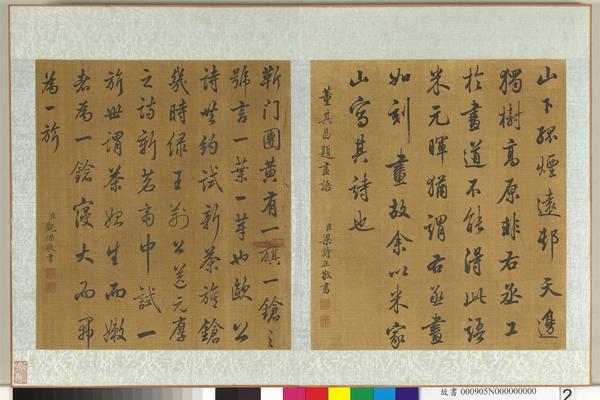 山下孤煙遠邨天邊
獨樹高原非右丞工
於畫道不能得此語
米元暉猶謂右丞畫
如刻畫故余以米家
山寫其詩也
董其昌題畫語
臣梁詩正敬書
蘄門團黃有一旗一鎗之
號言一葉一芽也歐公
詩共約試新茶旂鎗
幾時綠王荊公送元厚
之詩新茗齋中試一
旂世謂茶始生而嫩
者為一鎗寖大而開
為一旂
臣觀保敬書
故書 000905N000000000
2